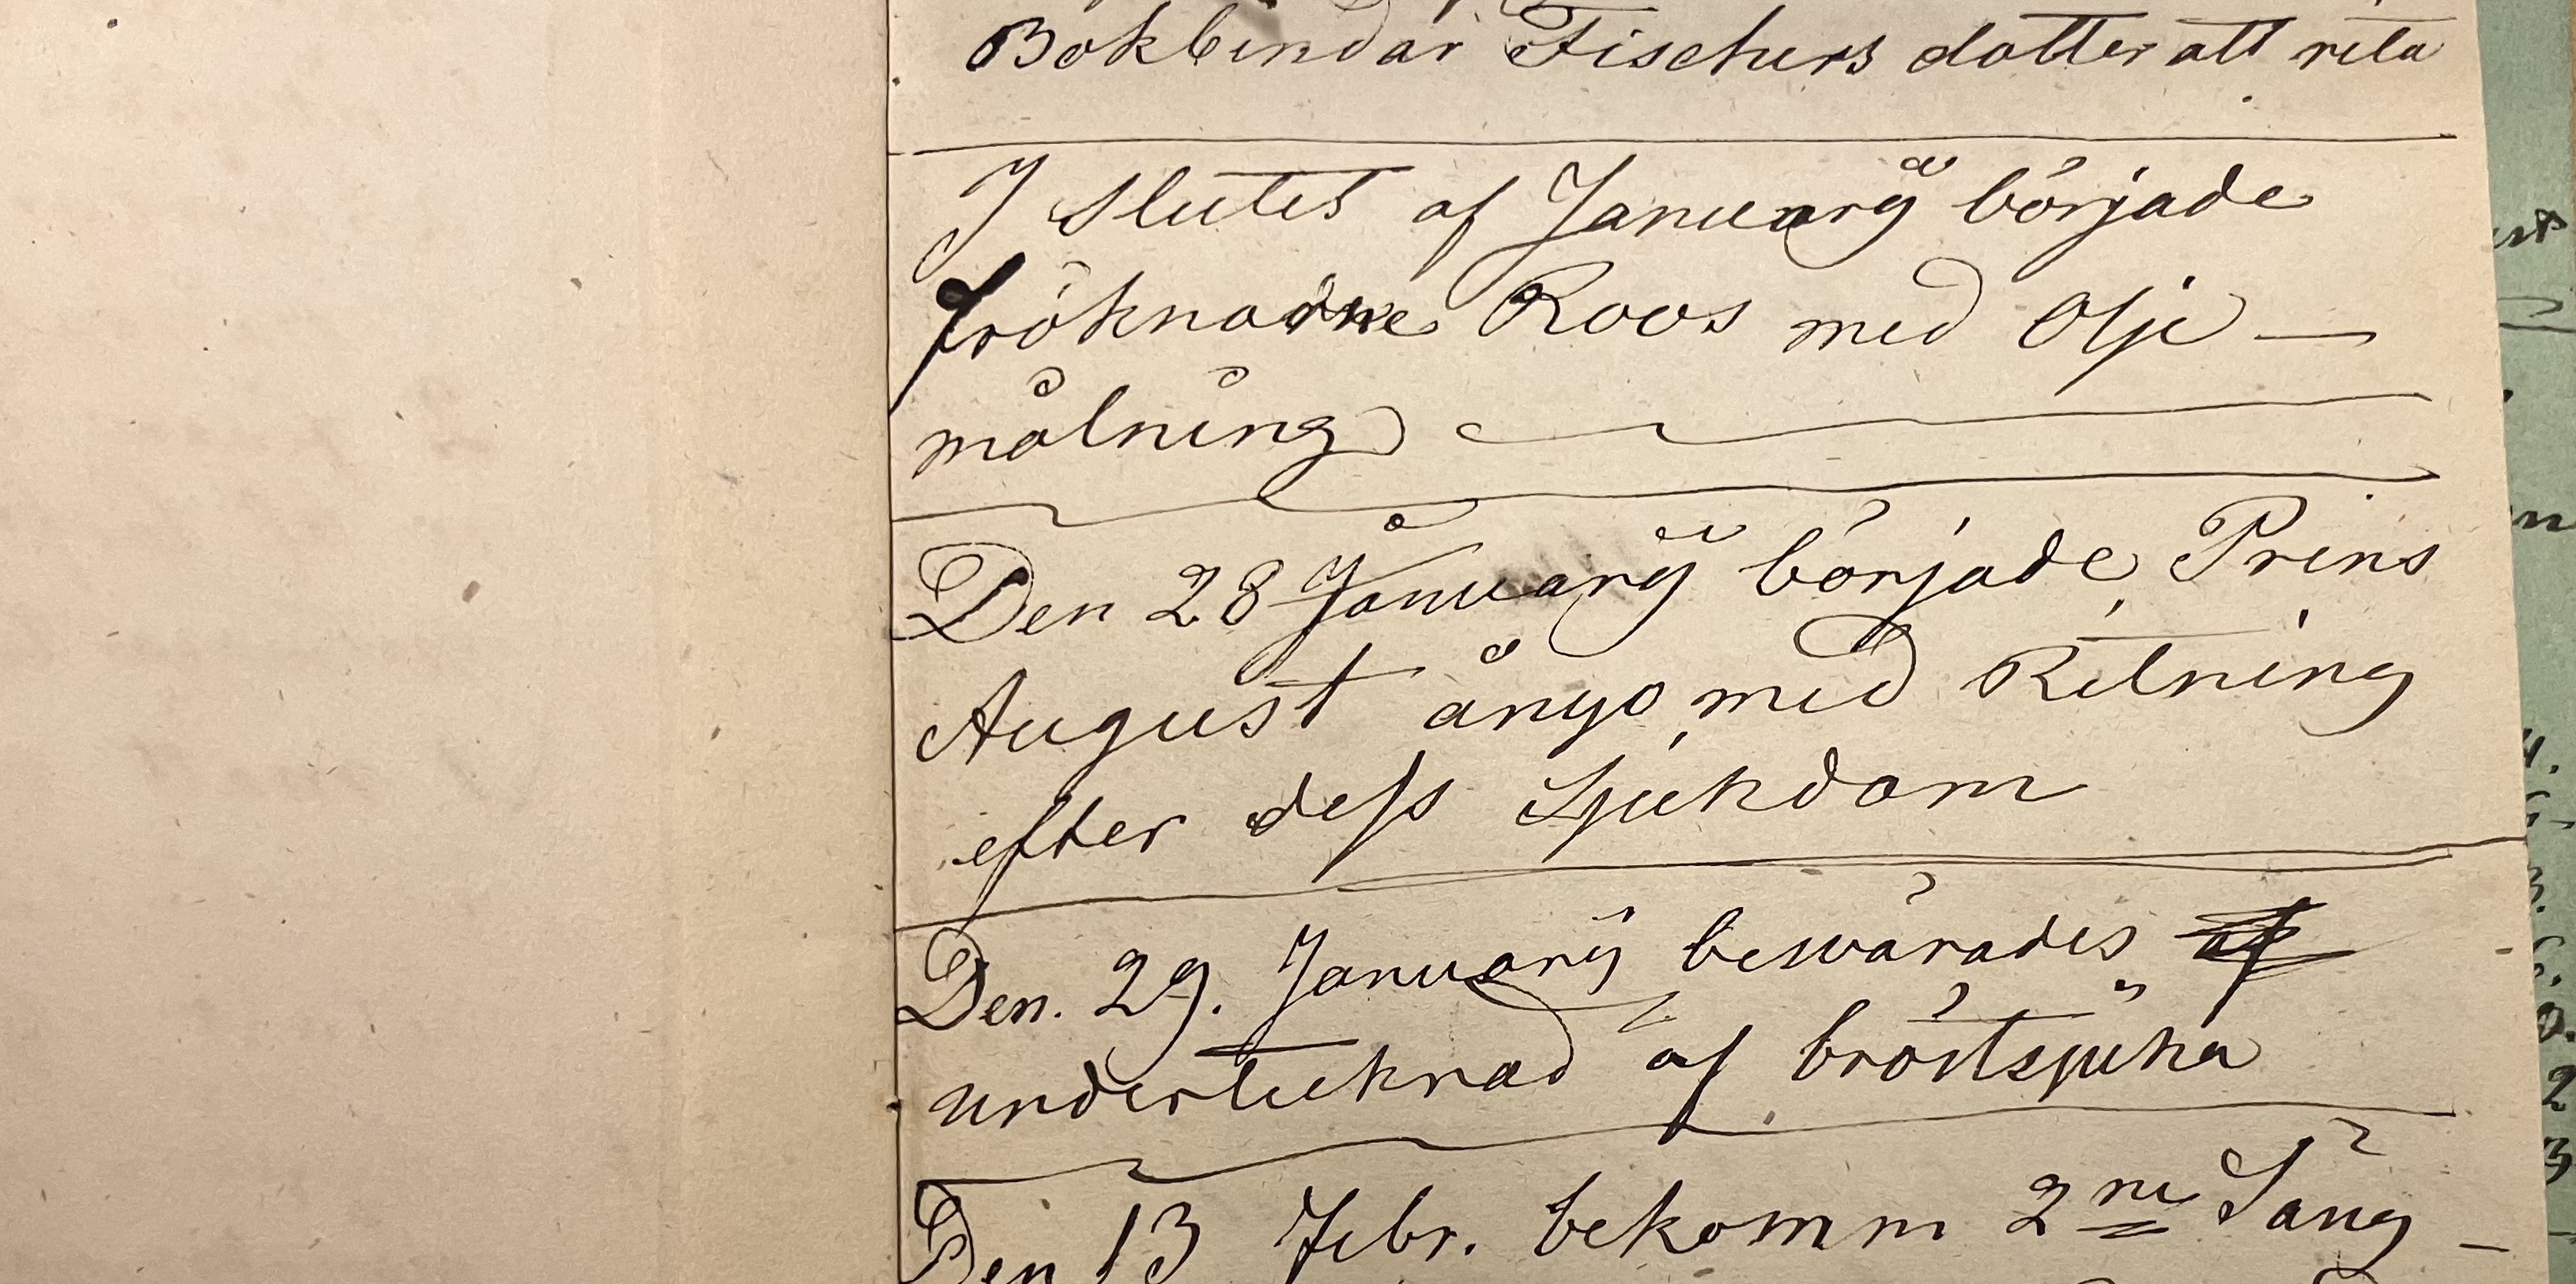 Bokbindar Fischers dotter att rita
I slutet af Januarÿ började
fröknarne Roos med Olje—
målning
Den 28 Januarÿ började Prins
August ånyo med Ritning
efter dess Sjukdom
Den. 29. Januarÿ beswärades af
undertecknad af bröstsjuka
Den 13 Febr. bekomm 2ne Säng—